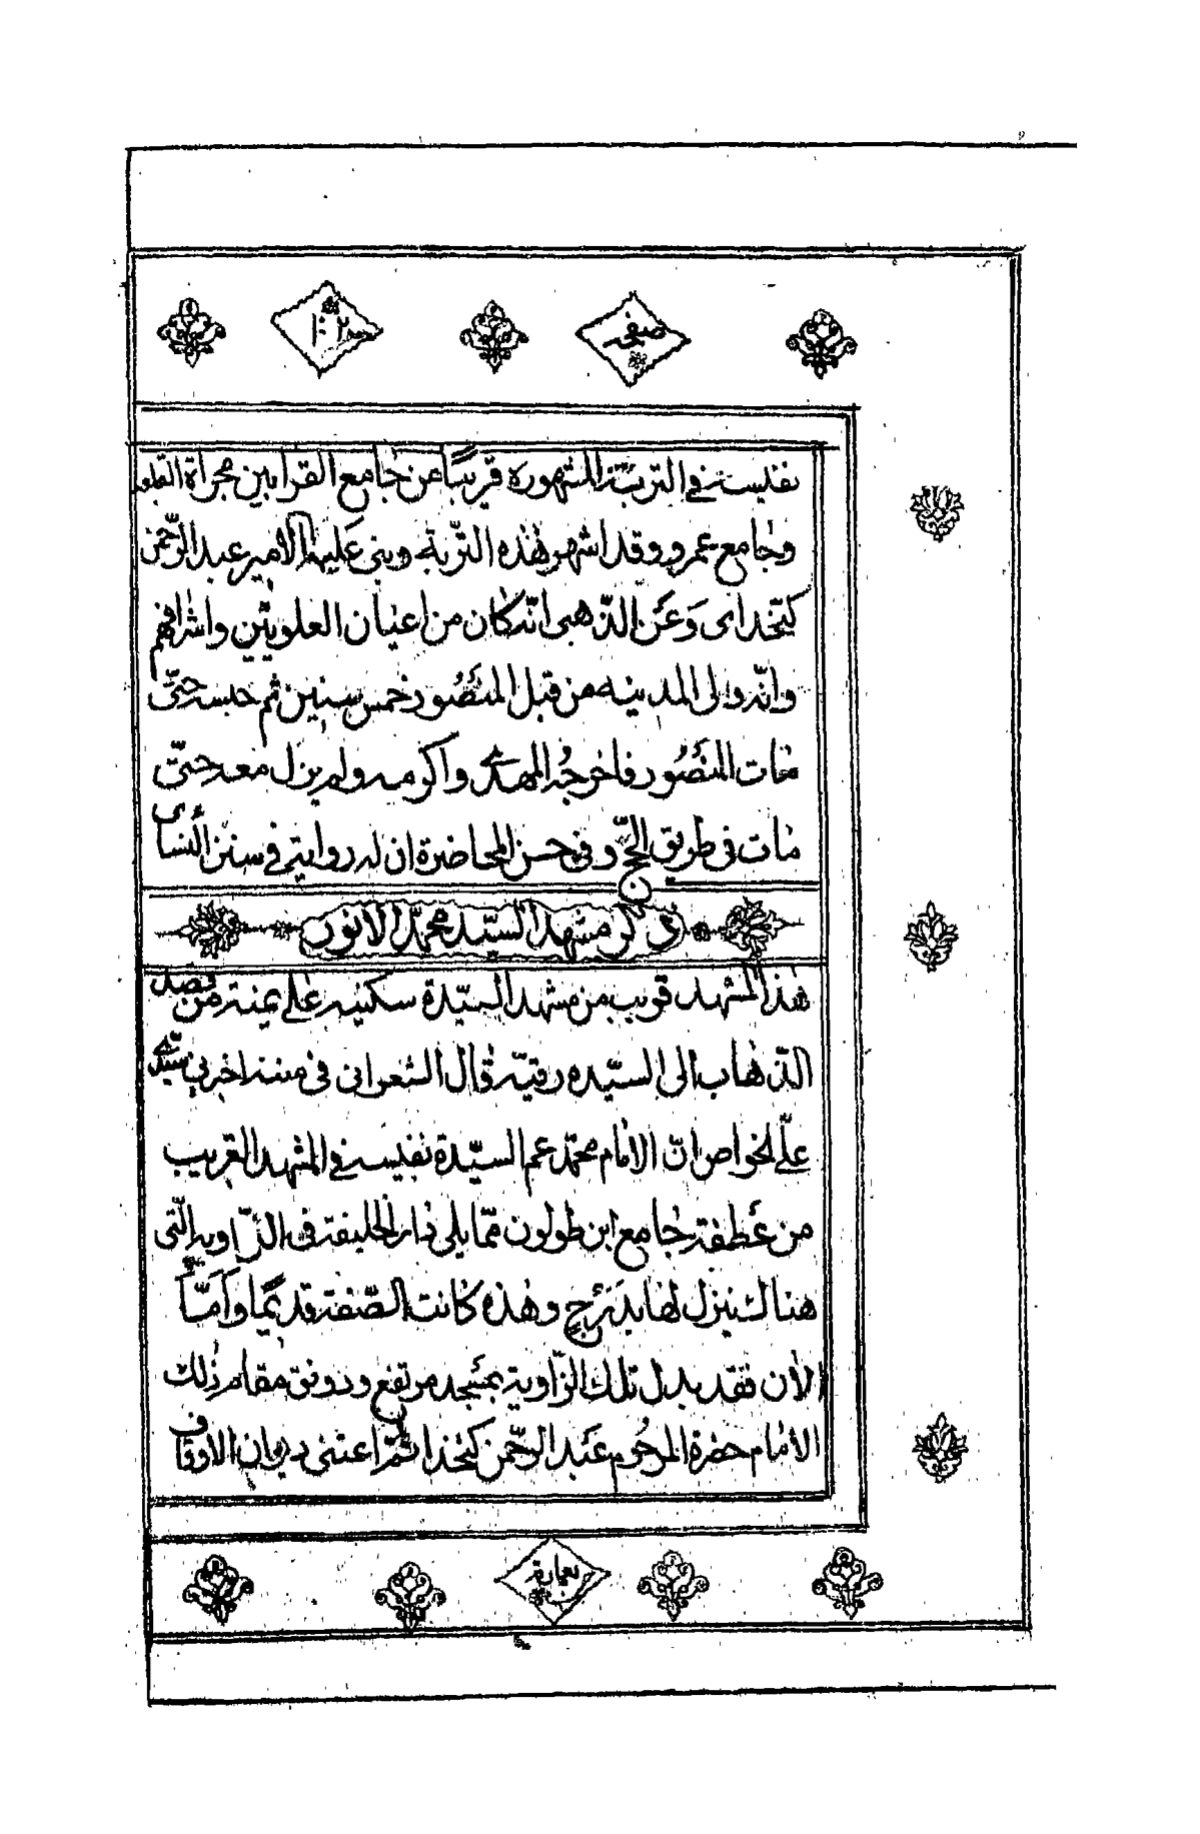 صفحه
١٠٢
نفيسة في التربة المشهورة قريبًا من جامع القرا بين مجراة القلعه
وجامع عمرو وقد اشهر هذه التّربة وبنى عليها الامير عبد الرّحمن
كتخداى وَعَن الذّهبى انّه كان من اعيان العلويّين واشرافهم
وانّه ولى المدينه من قبل المنصُور خمس سنين ثم حبسه حتّى
مات المنصُور فاخرجهُ المهدى واكرمه ولم يزل معه حتّى
مات فى طريق الحجّ وفى حسن المحاضرة ان له رواية فى سنن النسائى
ذكر مشهد السيّد محمّد الانور
هذا المشهد قريب من مشهد السيّدة سكينه على يمنة من قصد
الذهاب الى السيّده رقيّة قال الشعرانى فى مننه اخبرنى سيّدى
علّى الخواص انّ الامام محمّد عم السيّدة نفيسه فى المشهد القريب
من عَطفة جامع ابن طولون ممّا يلى دار الخليفة فى الزّاويه الّتى
هناك ينزل لها بدَرَج وهذه كانت الصّفة قديمًا وَامّا
الآن فقد بدل تلك الزّاوية بمسَجد مرتفع ورونق مقام ذلك
الامام حضرة المرحُوم عَبد الرحّمن كتخدا ثمّ اعتنى ديوان الاوقاف
بعمارة